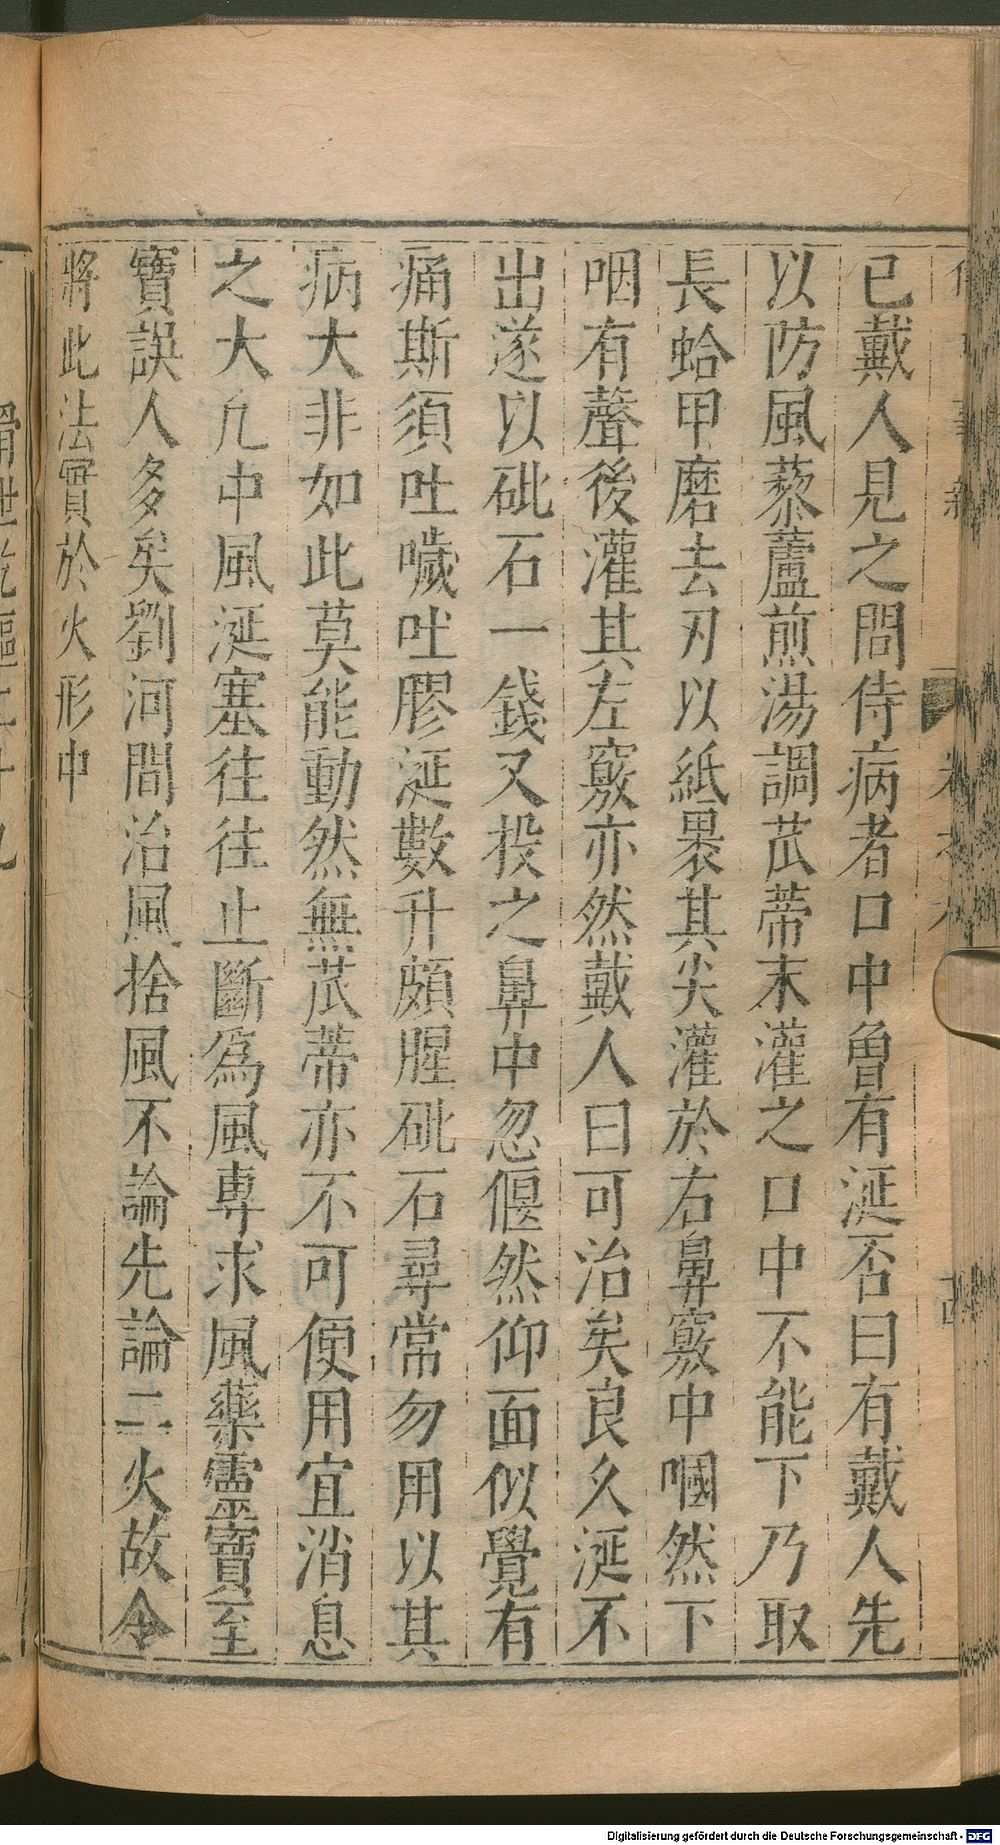 已戴人見之問侍病者口中曽有涎否曰有戴人先
以防風藜蘆煎湯調苽蒂末灌之口中不能下乃取
長蛤甲磨去刃以紙裹其尖灌於右鼻竅中嘓然下
咽有聲後灌其左竅亦然戴人曰可治矣良久涎不
出遂以砒石一錢又投之鼻中忽偃然仰面似覺有
痛斯須吐噦吐膠涎數升頗腥砒石尋常勿用以其
病大非如此莫能動然無苽蒂亦不可便用宜消息
之大凢中風涎塞往往止斷爲風專求風藥靈寶至
寶誤人多矣劉河間治風捨風不論先論二火故令
將此法實於火形中
Digitalisierung gefördert durch die Deutsche Forschungsgemeinschaft - DFG